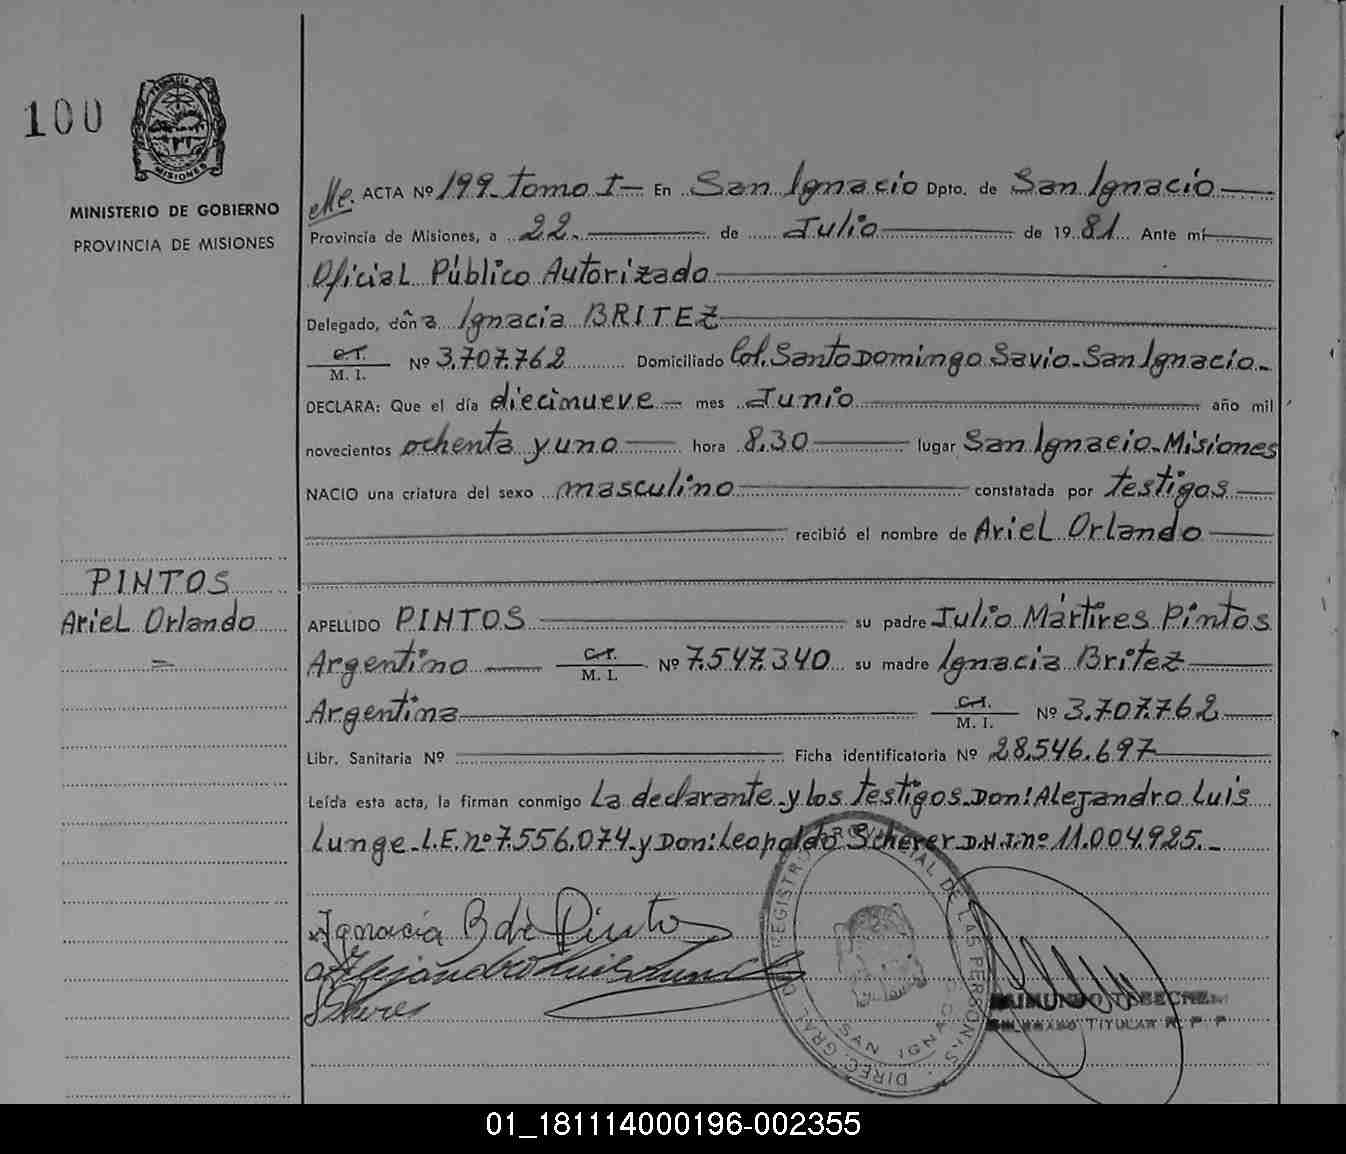 100
MISIONES
MINISTERIO DE GOBIERNO
PROVINCIA DE MISIONES
Me. ACTA Nº 199 - Tomo I - En San Ignacio Dpto. de San Ignacio
Provincia de Misiones, a 22. de Julio de 1981 Ante mí
Oficial Público Autorizado
Delegado, doña Ignacia BRITEZ
C.I. M. I. Nº 3.707.762 Domiciliado Col. Santo Domingo Savio - San Ignacio -
DECLARA: Que el día diecinueve mes Junio año mil
novecientos ochenta y uno hora 8.30 lugar San Ignacio - Misiones
NACIO una criatura del sexo masculino constatada por testigos
recibió el nombre de Ariel Orlando
PINTOS
Ariel Orlando
APELLIDO PINTOS su padre Julio Mártires Pintos
Argentino C.I. M. I. Nº 7.547.340 su madre Ignacia Britez
Argentina C.I. M. I. Nº 3.707.762
Libr. Sanitaria Nº Ficha identificatoria Nº 28.546.697
Leída esta acta, la firman conmigo La declarante y los testigos Don: Alejandro Luis
Lunge - L.E. nº 7.556.074 y Don: Leopoldo Scherer D.N.I. nº 11.004.925. -
Ignacia B de Pinto
DIREC. GRAL. REGISTRO PROVINCIAL DE LAS PERSONAS
SAN IGNACIO
RAIMUNDO
TITULAR R. P. P.
01_181114000196-002355